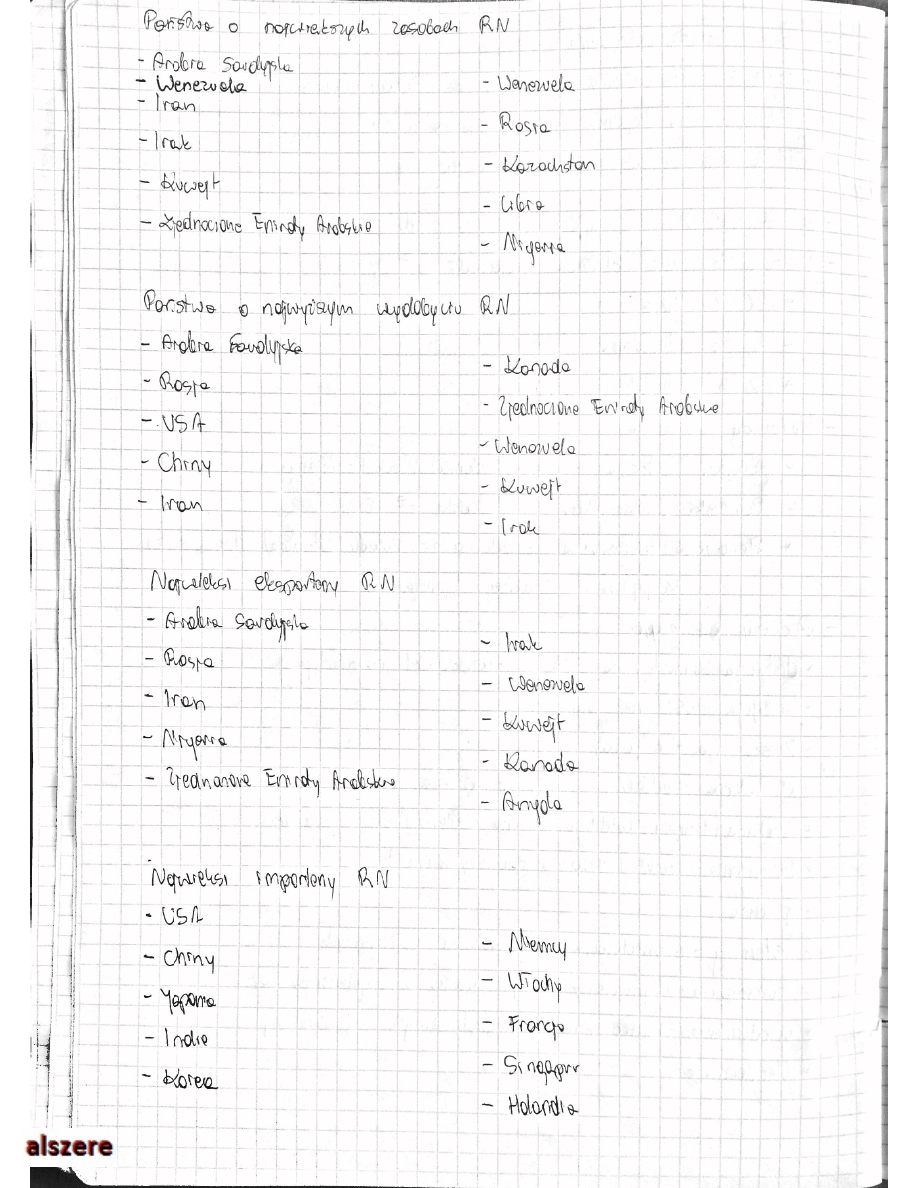 Państwa o największych zasobach RN
- Arabia Saudyjska
- Wenezuela
- Iran
- Irak
- Kuwejt
- Zjednoczone Emiraty Arabskie
- Wenezuela
- Rosja
- Kazachstan
- Libia
- Nigeria
Państwa o najwyższym wydobyciu RN
- Arabia Saudyjska
- Rosja
- USA
- Chiny
- Iran
- Kanada
- Zjednoczone Emiraty Arabskie
- Wenezuela
- Kuwejt
- Irak
Najwięksi eksporterzy RN
- Arabia Saudyjska
- Rosja
- Iran
- Nigeria
- Zjednoczone Emiraty Arabskie
- Irak
- Wenezuela
- Kuwejt
- Kanada
- Angola
Najwięksi importerzy RN
- USA
- Chiny
- Japonia
- Indie
- Korea
- Niemcy
- Włochy
- Francja
- Singapur
- Holandia
alszere